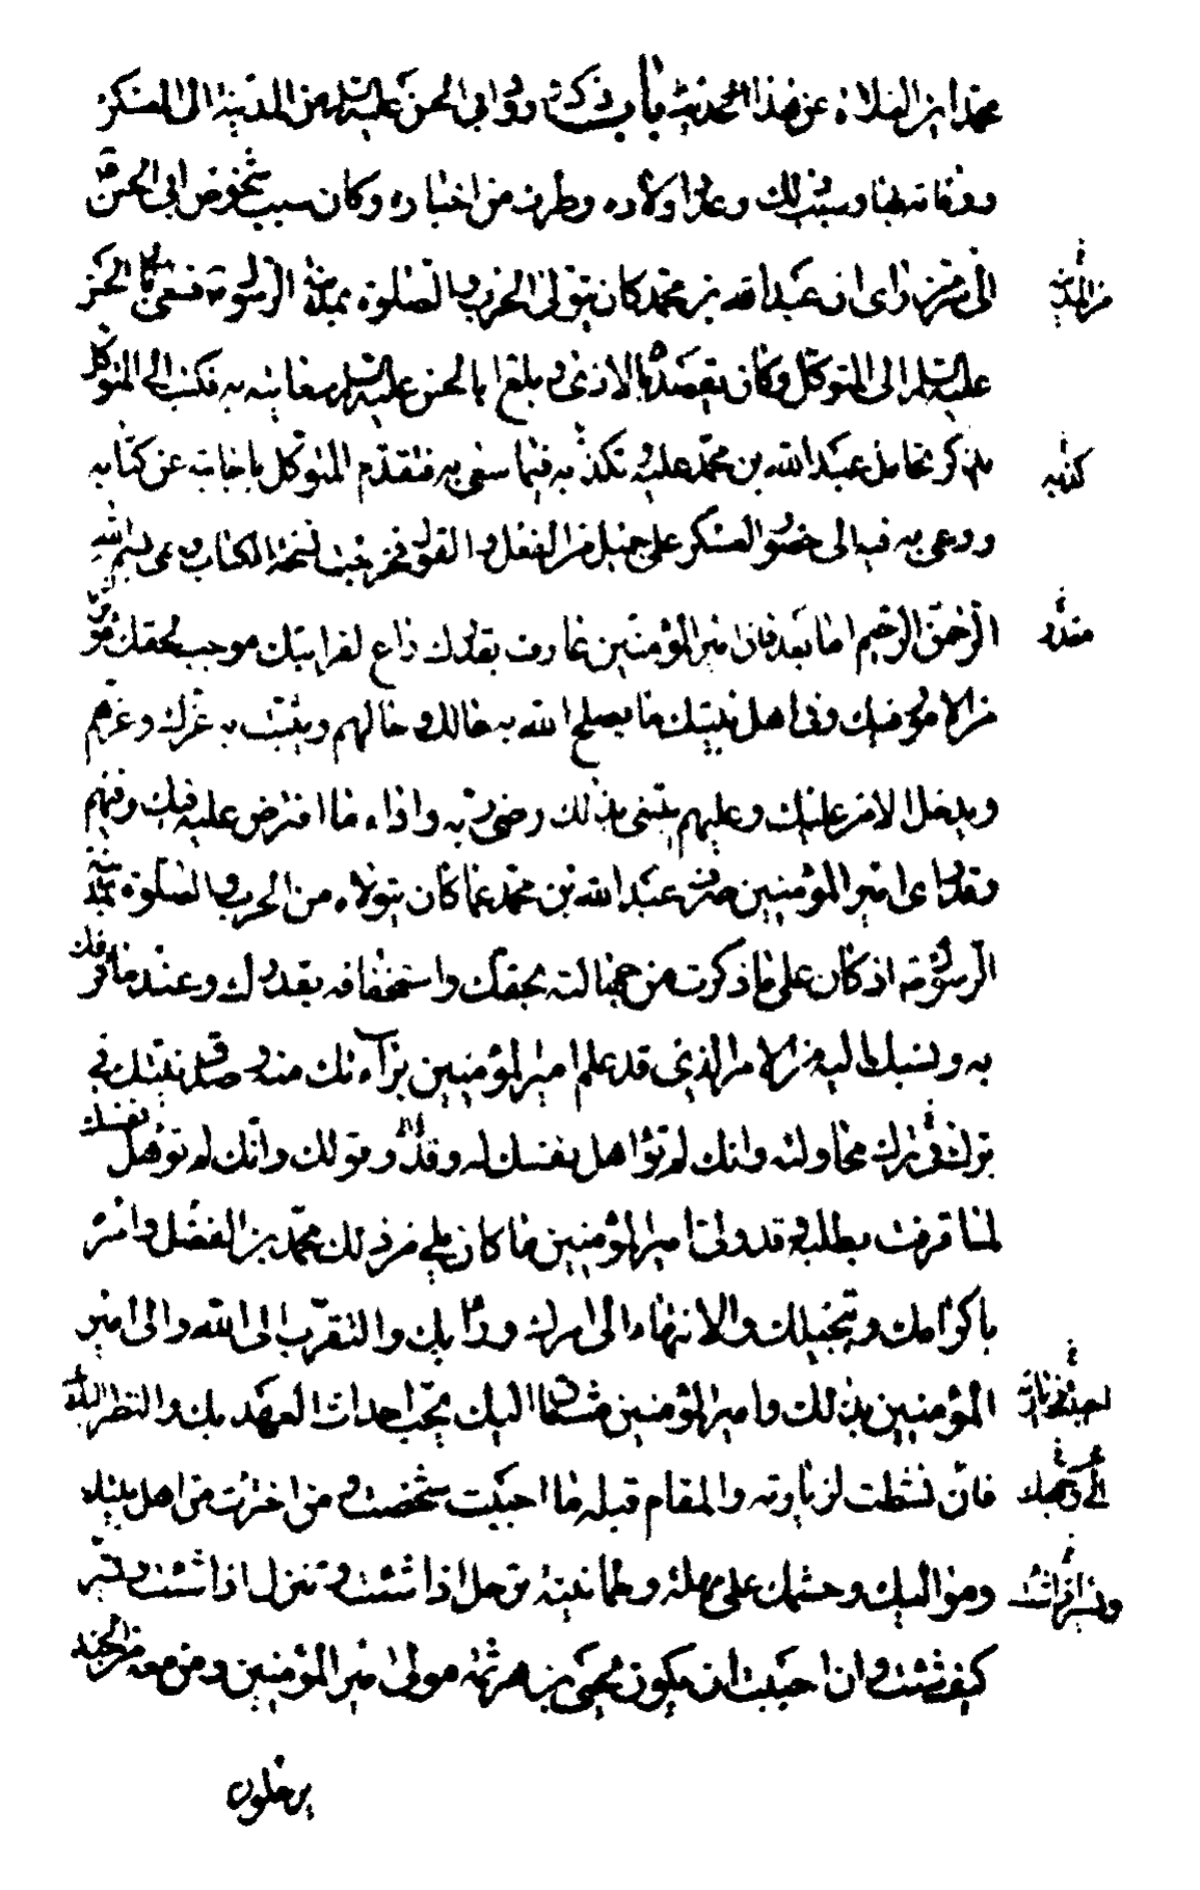 محمد ابن الفلاه عن هذا الحديث باب ذكر ورود ابي الحسن عليه السلم من المدينة الى العسكر
ووفاته بها وسبب ذلك وعدد اولاده وطرف من اخباره وكان سبب شخوص ابي الحسن ع
الى سر من راى ان عبد الله بن محمد كان يتولى الحرب والصلوة بمدينة الرسول ص فسعى بابي الحسن
من المدينة
عليه السلم الى المتوكل وكان يقصده بالاذى وبلغ ابا الحسن عليه السلم سعايته به فكتب الى المتوكل
يذكر تحامل عبد الله بن محمد عليه وكذبه فيما سعى به فتقدم المتوكل باجابته عن كتابه
كذبه
ودعى به فيه الى حضور العسكر على جميل من الفعل والقول فخرجت نسخة الكتاب وهى بسم الله
الرحمن الرحيم اما بعد فان امير المؤمنين عارف بقدرك راع لقرابتك موجب لحقك مؤثر
مقدر
من الامور فيك وفى اهل بيتك ما يصلح الله به حالك وحالهم ويثبت به عزك وعزهم
ويدخل الامر عليك وعليهم يبتغى بذلك رضى ربه واداء ما افترض عليه فيك وفيهم
وقد راى امير المؤمنين صرف عبد الله بن محمد عما كان يتولاه من الحرب والصلوة بمدينة
الرسول ص اذ كان على ما ذكرت من جهالته بحقك واستخفافه بقدرك وعند ما قرفك
به ونسبك اليه من الامر الذى قد علم امير المؤمنين براءتك منه وصدق نيتك في
برك وفى ترك محاولته وانك لم تؤاهل نفسك له وقد وقولك وانك لم تؤهل نفسك
لما قرفت بطلبه وقد ولى امير المؤمنين ما كان يلى من ذلك محمد بن الفضل وامره
باكرامك وتبجيلك والانتهاء الى امرك ورايك والتقرب الى الله والى امير
المؤمنين بذلك وامير المؤمنين مشتاق اليك يحب احداث العهد بك والنظر اليك
فان نشطت لزيارته والمقام قبله ما احببت شخصت ومن اخترت من اهل بيتك
ومواليك وحشمك على مهلة وطمانينة ترحل اذا شئت وتنزل اذا شئت وتسير
كيف شئت وان احببت ان يكون يحيى بن هرثمة مولى امير المؤمنين ومن معه من الجند
يرحلون